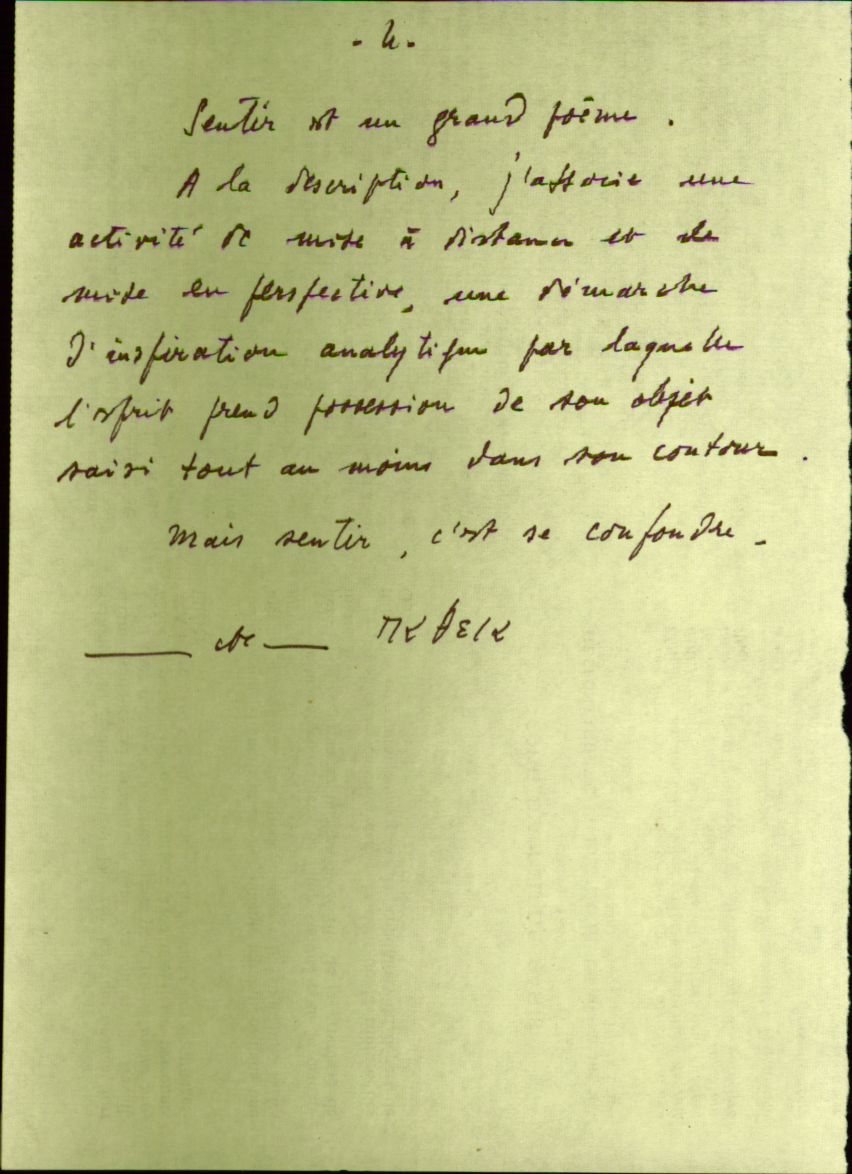 - 4 -
Sentir est un grand poème .
A la description, j'associe une
activité de mise à distance et de
mise en perspective, une démarche
d'inspiration analytique par laquelle
l'esprit prend possession de son objet
saisi tout au moins dans son contour .
Mais sentir, c'est se confondre .